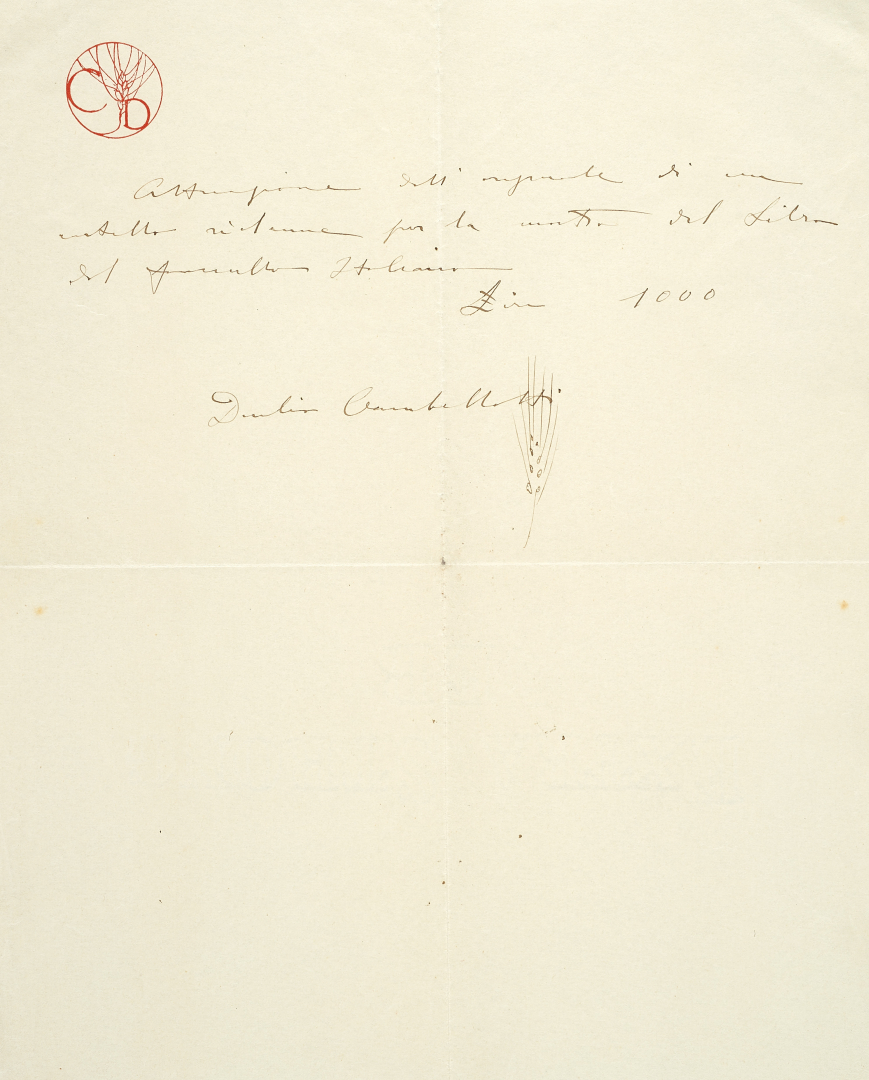 CD
Attenzione dell' originale di un
cartello réclame per la mostra del Libro
del fanciullo Italiano
Lire 1000
Duilio Cambellotti